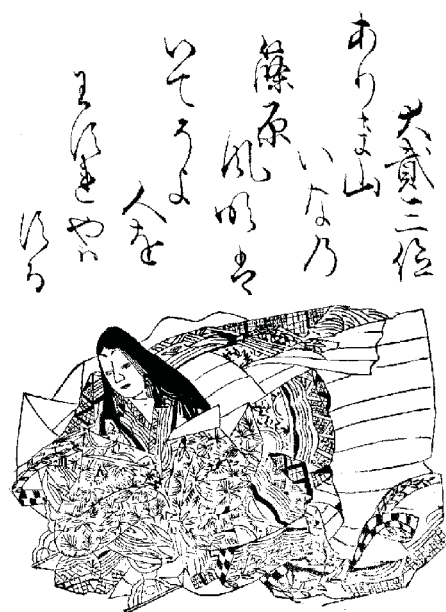 大貳三位
ありま山
いな乃
篠原
風吹は
いてそよ
人を
わすれやハ
する